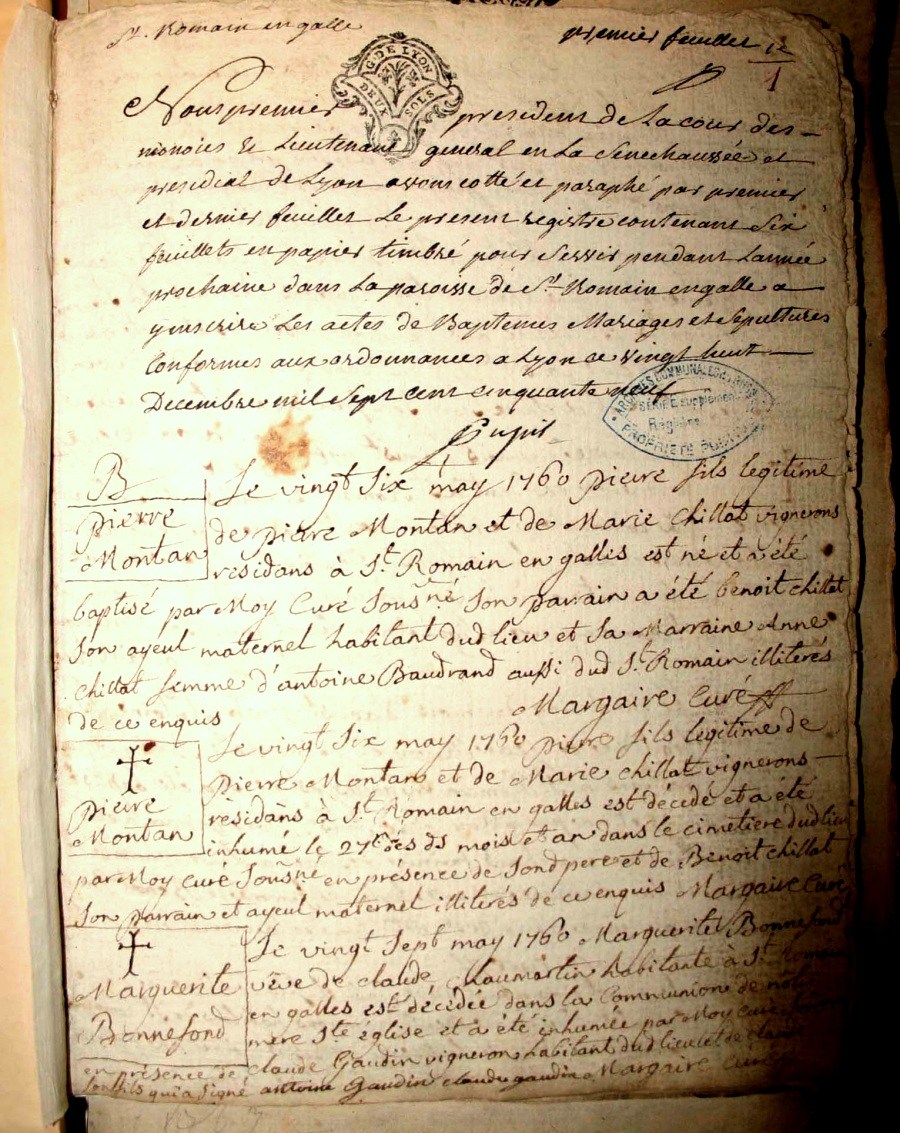 St. Romain en galle
premier feuillet
1
G. DE LYON
DEUX SOLS
Nous premier president de La cour des
monoies & Lieutenant general en La Senechaussée et
presidial de Lyon avons cotté et paraphé par premier
et dernier feuillet Le present registre contenant Six
feuillets en papier timbré pour Servir pendant L'année
prochaine dans La paroisse de St. Romain en galle a
y inscrire Les actes de Baptemes Mariages et Sepultures
Conformes aux ordonnances a Lyon ce vingt huit
Decembre mil Sept Cent Cinquante neuf
Pupil
ARCHIVES COMMUNALES
SERIE E supplément
Registre
PROPRIETE PUBLIQUE
B
Pierre
Montan
Le vingt Six may 1760 pierre fils legitime
de pierre Montan et de Marie Chillat vignerons
residans à St. Romain en galles est né et a été
baptisé par Moy Curé Sousné Son parrain a été benoit chillat
Son ayeul maternel habitant dud lieu et Sa Marraine Anne
Chillat femme d'antoine Baudrand aussi dud St. Romain illiterés
de ce enquis
Margaire Curé
†
Pierre
Montan
Le vingt Six may 1760 pierre fils legitime de
Pierre Montan et de Marie chillat vignerons
résidans à St. Romain en galles est décédé et a été
inhumé le 27e des ds mois et an dans le cimetiere dud lieu
par Moy Curé Sousné en présence de Sond pere et de Benoit Chillat
Son parrain et ayeul maternel illiterés de ce enquis Margaire Curé
†
Marguerite
Bonnefond
Le vingt Sept may 1760 Marguerite Bonnefond
vêve de claude Chaumartin habitante à St. Romain
en galles est décédée dans la Communion de notre
mere Ste église et a été inhumée par Moy Curé
en présence de claude Gaudin vigneron habitant dud lieu et de
Son fils qui a Signé antoine Gaudin claude gaudin Margaire Curé